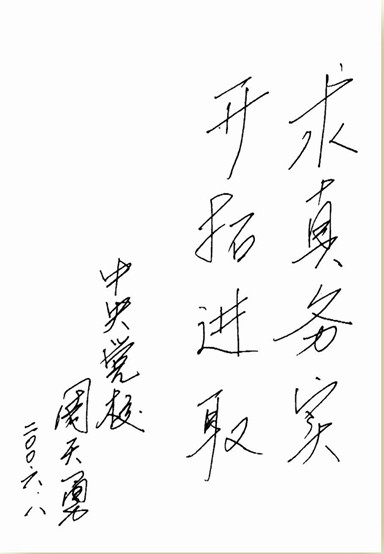 求真务实
开拓进取
中央党校
周天勇
二〇〇六.八